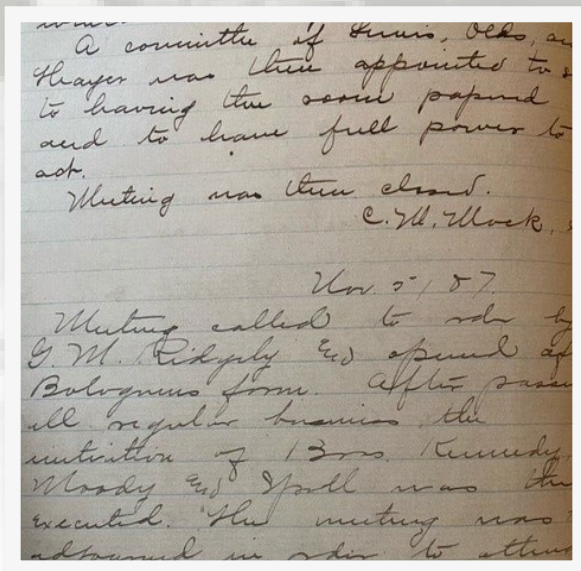 A committee of Lewis, Olds, an
Thayer was then appointed to s
to having the room papered
and to have full power to
act.
Meeting was then closed.
C. M. Mock,
Nov. 5, 87.
Meeting called to order by
G. M. Ridgely and opened af
Bologneus form. After passi
all regular business the
initiation of Bros. Kennedy,
Moody and Spell was then
executed. The meeting was
adjourned in order to atten